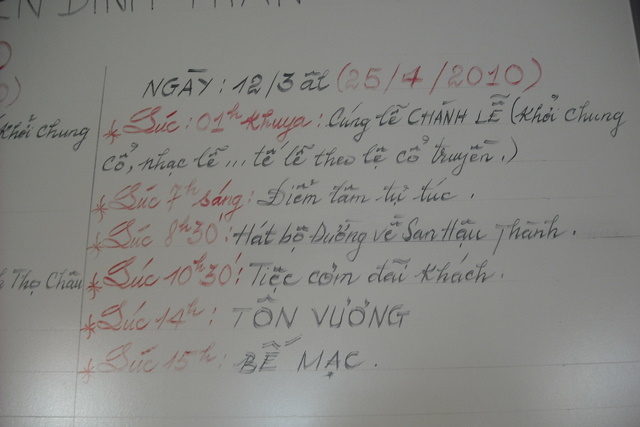 NGÀY : 12/3 âl (25/4/2010)
khởi chung
* Lúc : 01h khuya : Cúng tế CHÁNH LỄ (khởi chung
cổ, nhạc lễ ... tế lễ theo lệ cổ truyền.)
* Lúc 7h sáng : Điểm tâm tự túc .
* Lúc 8h30' : Hát bộ Đường về San Hậu Thành .
Thọ Châu
* Lúc 10h30' : Tiệc cơm đãi khách .
* Lúc 14h : TÔN VƯƠNG
* Lúc 15h : BẾ MẠC .